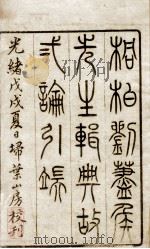 桐柏劉藎侯
先生輯典故
弍論引端
光緒戊戌夏日埽葉山房校刊